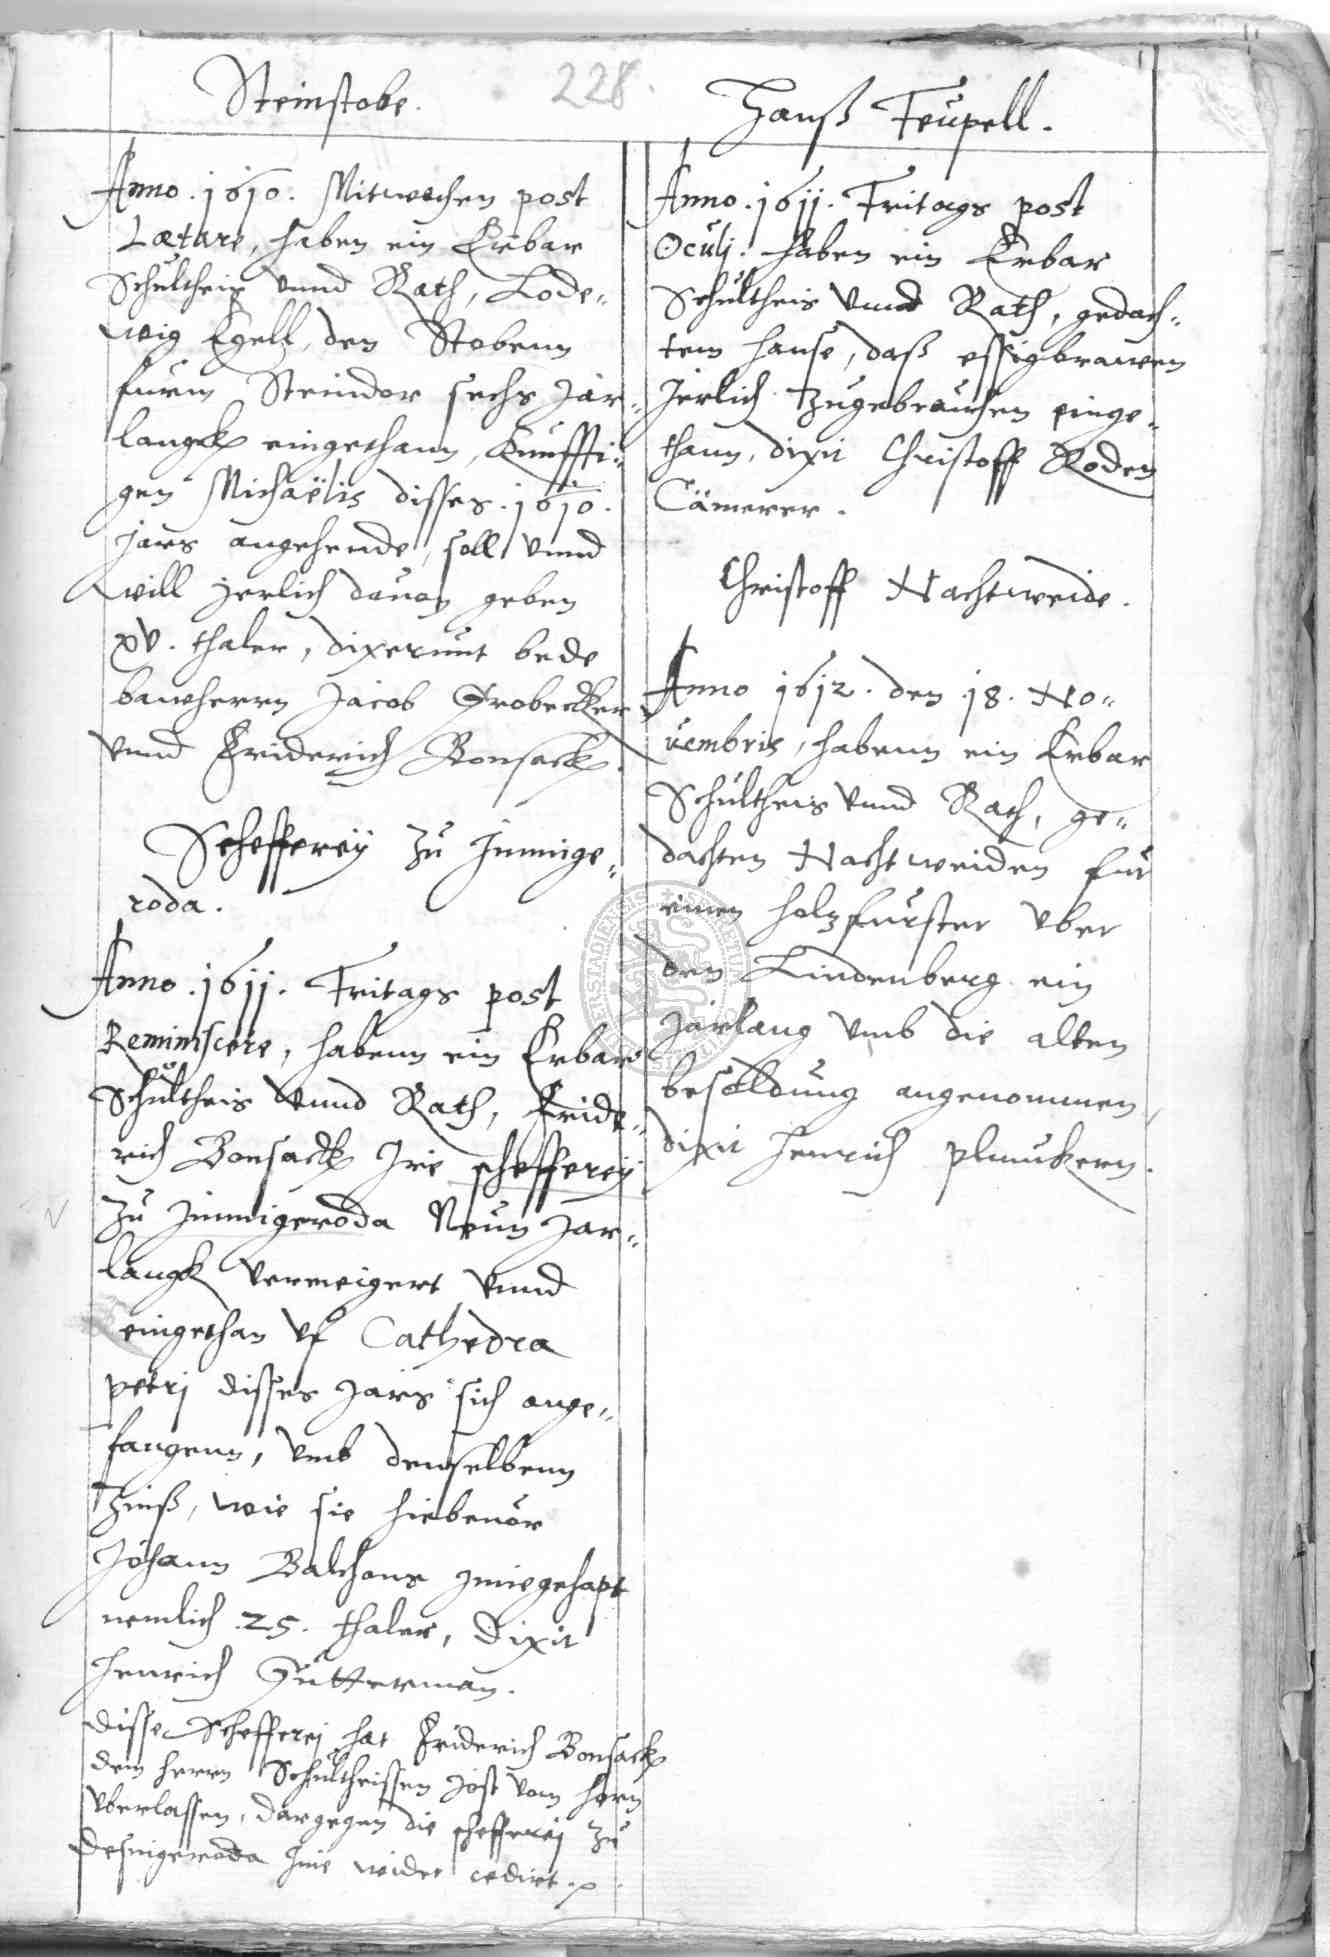 228.
Steinstobe.
Anno . 1610 . Mitwochen post
Lætare, haben ein Erbar
Schultheis vnnd Rath, Lode„
wig Egell, den Stobenn
furm Steindor sechs Jar„
langk eingethann, Kunffti„
gen Michaëlis disses . 1610 .
Jars angehende, soll vnnd
will jerlich dauon geben
xv. thaler, dixerunt bede
bawherrn Jacob Grobecker
vnnd Friderich Bonsack.
Schefferey zu Immige„
roda.
Anno . 1611 . Fritags post
Reminiscere, habenn ein Erbar
Schultheis vnnd Rath, Fride„
rich Bonsack Ire schefferey
zu Immigeroda Neun Jar„
langk vermeigert vnnd
eingethan vf Cathedra
petrj disses Jars sich ange„
fangenn, vmb denselbenn
Zinß, wie sie hiebeuor
Johann Balthans innegehapt
nemlich . 25 . thaler, Dixit
Henrich Gutterman.
disse Schefferej hat Friderich Bonsack
dem herrn Schultheissen Jost vom Horn
vberlassen, dargegen die schefferej zu
Desingeroda Ime wider cedirt.
Hanß Teupell.
Anno . 1611 . Fritags post
Oculj . haben ein Erbar
Schultheis vnnd Rath, gedach„
tem Hanse, daß essigbrawen
Jerlich zugebrauchen einge„
thann, dixit Christoff Roden
Cämerer.
Christoff Nachtweide.
Anno 1612 . den 18 . No„
uembris, habenn ein Erbar
Schultheis vnnd Rath, ge„
dachten Nachtweiden fur
einen holzfurster vber
den Lindenberg ein
Jarlang vmb die alten
besoldung angenommen,
dixit Henrich plmukern.